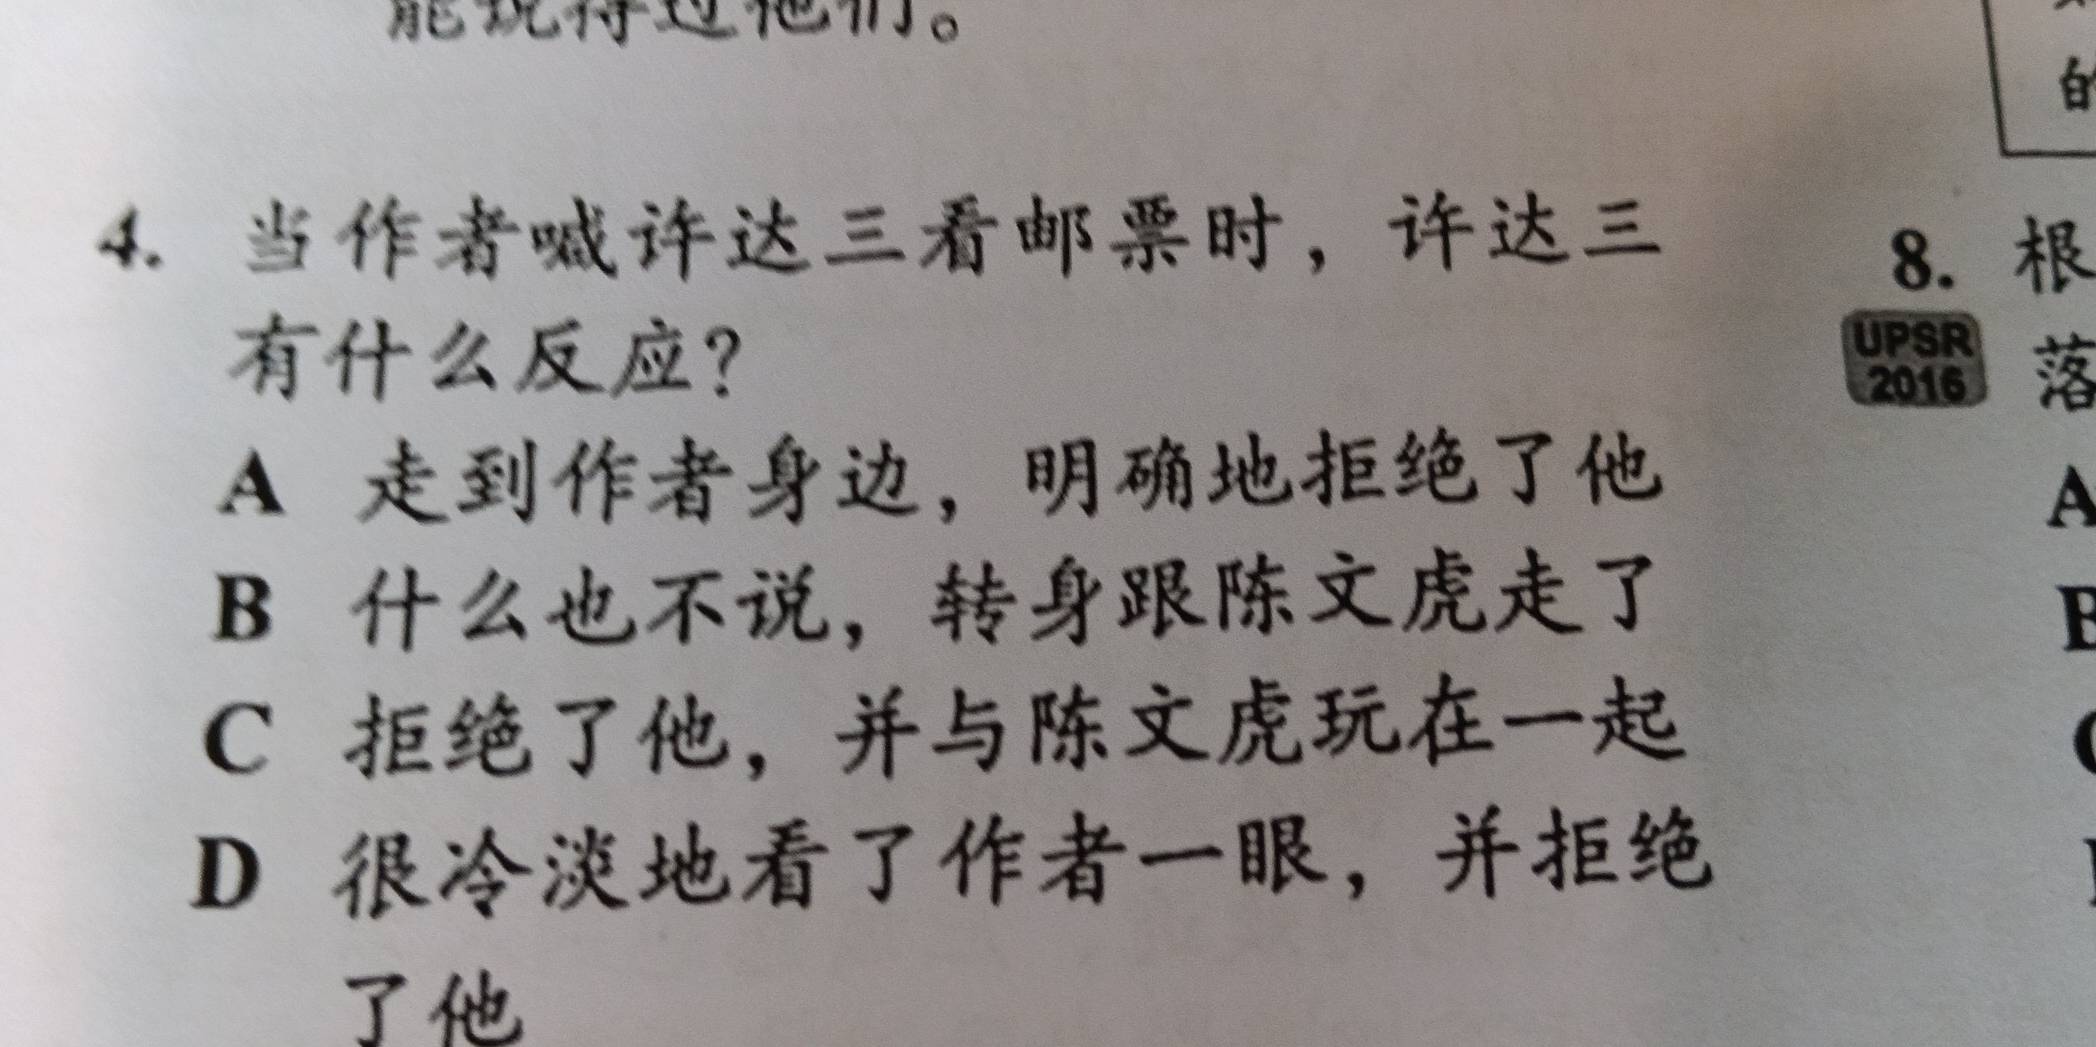 能说得过他们。
的
4. 当作者喊许达三看邮票时，许达三
有什么反应？
A 走到作者身边，明确地拒绝了他
B 什么也不说，转身跟陈文虎走了
C 拒绝了他，并与陈文虎玩在一起
D 很冷淡地看了作者一眼，并拒绝
了他
8. 根
UPSR
2016
落
A
B